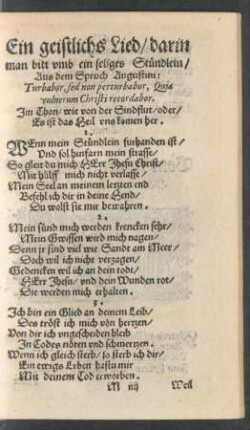 Ein geistlichs Lied/ darin
man bidt vmb ein seliges Stündlein/
Aus dem Spruch Augustini:
Turbabor, sed non perturbabor, Quia
vulnerum Christi recordabor.
Im Thon/ wie von der Sindflut/ oder/
Es ist das Heil vns komen her.
1.
WEnn mein Stündlein furhanden ist/
Vnd sol hinfarn mein strasse/
So gleit du mich HErr Jhesu Christ/
Mit hülff mich nicht verlasse/
Mein Seel an meinem letzten end
Befehl ich dir in deine Hend/
Du wolst sie mir bewahren.
2.
Mein sünd mich werden krencken sehr/
Mein Gwissen wird mich nagen/
Denn jr sind viel wie Sande am Meer/
Doch wil ich nicht verzagen/
Gedencken wil ich an dein todt/
HErr Jhesu/ vnd dein Wunden rot/
Die werden mich erhalten.
3.
Ich bin ein Glied an deinem Leib/
Des tröst ich mich von hertzen/
Von dir ich vngescheiden bleib
In Todes nöten vnd schmertzen.
Wenn ich gleich sterb/ so sterb ich dir/
Ein ewiges Leben hastu mir
Mit deinem Tod erworben.
M iij Weil